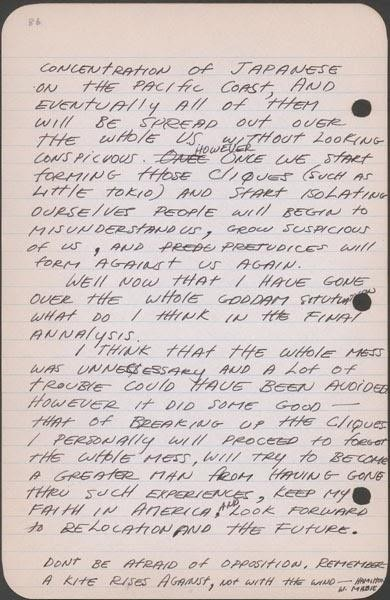 86
CONCENTRATION OF JAPANESE
ON THE PACIFIC COAST, AND
EVENTUALLY ALL OF THEM
WILL BE SPREAD OUT OVER
THE WHOLE US WITHOUT LOOKING
CONSPICUOUS. ONCE HOWEVER ONCE WE START
FORMING THOSE CLIQUES (SUCH AS
LITTLE TOKIO) AND START ISOLATING
OURSELVES PEOPLE WILL BEGIN TO
MISUNDERSTAND US, GROW SUSPICIOUS
OF US, AND PREDU PREJUDICES WILL
FORM AGAINST US AGAIN.
WELL NOW THAT I HAVE GONE
OVER THE WHOLE GODDAM SITUTUATION
WHAT DO I THINK IN THE FINAL
ANNALYSIS.
I THINK THAT THE WHOLE MESS
WAS UNNESSESSARY AND A LOT OF
TROUBLE COULD HAVE BEEN AVOIDED.
HOWEVER IT DID SOME GOOD —
THAT OF BREAKING UP THE CLIQUES.
I PERSONALLY WILL PROCEED TO FORGET
THE WHOLE MESS, WILL TRY TO BECOME
A GREATER MAN FROM HAVING GONE
THRU SUCH EXPERIENCES, KEEP MY
FAITH IN AMERICA, AND LOOK FORWARD
TO RELOCATION AND THE FUTURE.
DONT BE AFRAID OF OPPOSITION. REMEMBER
A KITE RISES AGAINST, NOT WITH THE WIND — HAMILTON
W. MABIE